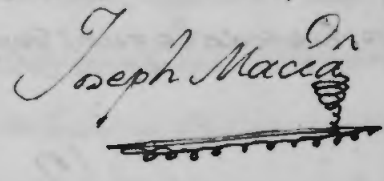 Joseph Macià